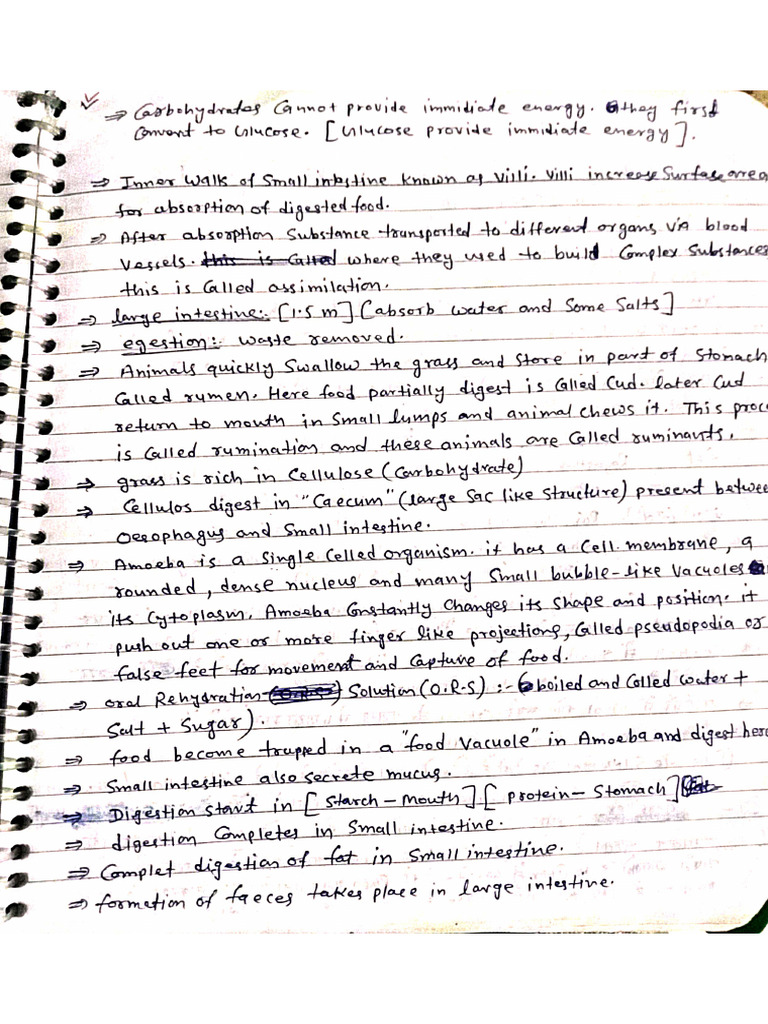 ⇒ Carbohydrates Cannot provide immidiate energy. they first
Convert to Glucose. [Glucose provide immidiate energy].
⇒ Inner walls of small intestine known as Villi. Villi increase Surface area
for absorption of digested food.
⇒ After absorption Substance transported to different organs via blood
Vessels. this is Called where they used to build Complex Substances
this is Called assimilation.
⇒ large intestine:- [1.5 m] [absorb water and Some Salts]
⇒ egestion:- waste removed.
⇒ Animals quickly Swallow the grass and Store in part of Stomach
Called rumen. Here food partially digest is Called Cud. later Cud
return to mouth in Small lumps and animal chews it. This proc
is Called rumination and these animals are Called ruminants.
⇒ grass is rich in Cellulose (Carbohydrate)
⇒ Cellulos digest in "Caecum" (large Sac like Structure) present betwee
Oesophagus and Small intestine.
⇒ Amoeba is a Single Celled organism. it has a Cell membrane, a
rounded, dense nucleus and many Small bubble-like Vacuoles
its Cytoplasm. Amoeba Constantly Changes its Shape and position. it
push out one or more finger like projections, Called pseudopodia or
false feet for movement and Capture of food.
⇒ oral Rehydration Solution (O.R.S) :- (boiled and Colled water +
Salt + Sugar).
⇒ food become trapped in a "food Vacuole" in Amoeba and digest here
⇒ Small intestine also Secrete mucus.
⇒ Digestion Start in [Starch - Mouth] [protein - Stomach]
⇒ digestion Completes in Small intestine.
⇒ Complet digestion of fat in Small intestine.
⇒ formation of faeces takes place in large intestine.